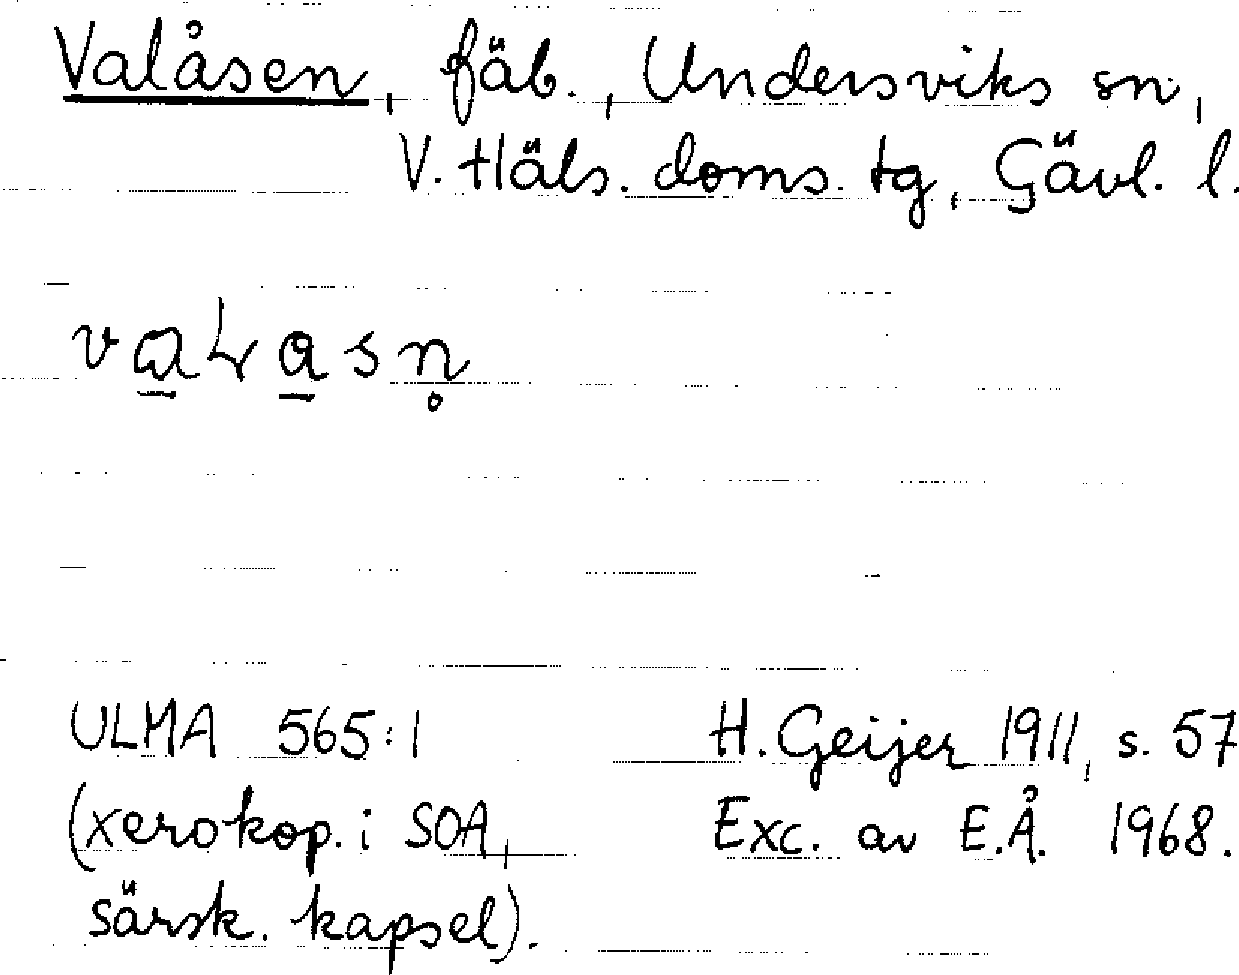 Valåsen, fäb., Undersviks sn,
V. Häls. doms. tg, Gävl. l.
ULMA 565:1
(xerokop. i SOA,
särsk. kapsel).
H. Geijer 1911, s. 57
Exc. av E.Å. 1968.